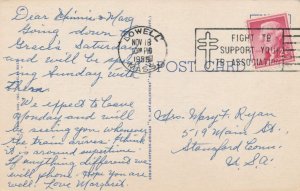 Dear Minnie & Mary
Going down
Gracie's Saturday
and will be
ing Sunday with
them.
We expect to leave
Monday and will
be seeing you whenever
the train arrives. I think
it is around suppertime.
If anything different we
will phone. Hope you are
well. Love Margaret.
LOWELL
NOV 18
1955
MASS.
FIGHT TB
SUPPORT YOUR
TB ASSOCIATION
POST CARD
Mrs. Mary F. Ryan
519 Main St.
Stamford Conn.
USA